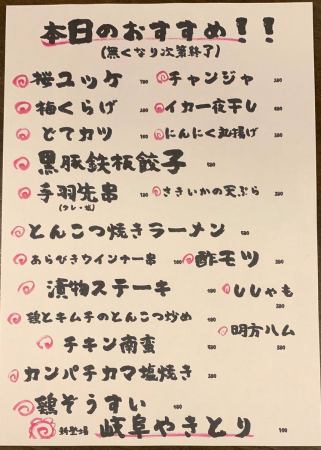 本日のおすすめ!!
(無くなり次第終了)
桜ユッケ チャンジャ
梅くらげ イカ一夜干し
どてカツ にんにく丸揚げ
黒豚鉄板餃子
手羽先串 さきいかの天ぷら
(タレ・塩)
とんこつ焼きラーメン
あらびきウインナー串 酢モツ
漬物ステーキ ししゃも
鶏とキムチのとんこつ炒め
明方ハム
チキン南蛮
カンパチカマ塩焼き
鶏ぞうすい
新登場 岐阜やきとり